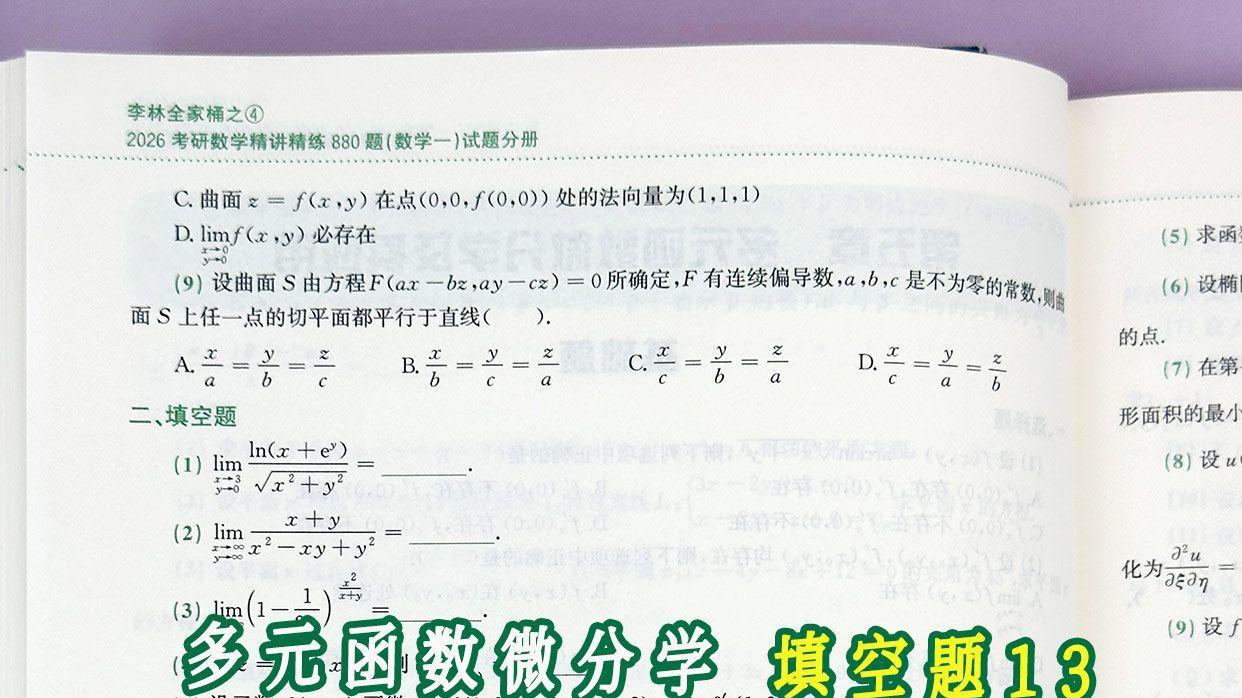 李林全家桶之④
2026 考研数学精讲精练 880 题(数学一)试题分册
C. 曲面 z = f(x,y) 在点(0,0,f(0,0)) 处的法向量为(1,1,1)
D. lim f(x,y) 必存在
x→0
y→0
(9) 设曲面 S 由方程 F(ax − bz,ay − cz) = 0 所确定,F 有连续偏导数,a,b,c 是不为零的常数,则曲
面 S 上任一点的切平面都平行于直线( ).
A. x/a = y/b = z/c B. x/b = y/c = z/a C. x/c = y/b = z/a D. x/c = y/a = z/b
二、填空题
(1) lim x→3 y→0 ln(x + e^y)/√(x² + y²) = ______.
(2) lim x→∞ y→∞ (x + y)/(x² − xy + y²) = ______.
(3) lim (1 − 1/ )^(x²/(x+y)) = ______.
多元函数微分学 填空题13
(5) 求函
(6) 设椭
的点.
(7) 在第
形面积的最小
(8) 设 u
化为 ∂²u/∂ξ∂η =
(9) 设 f